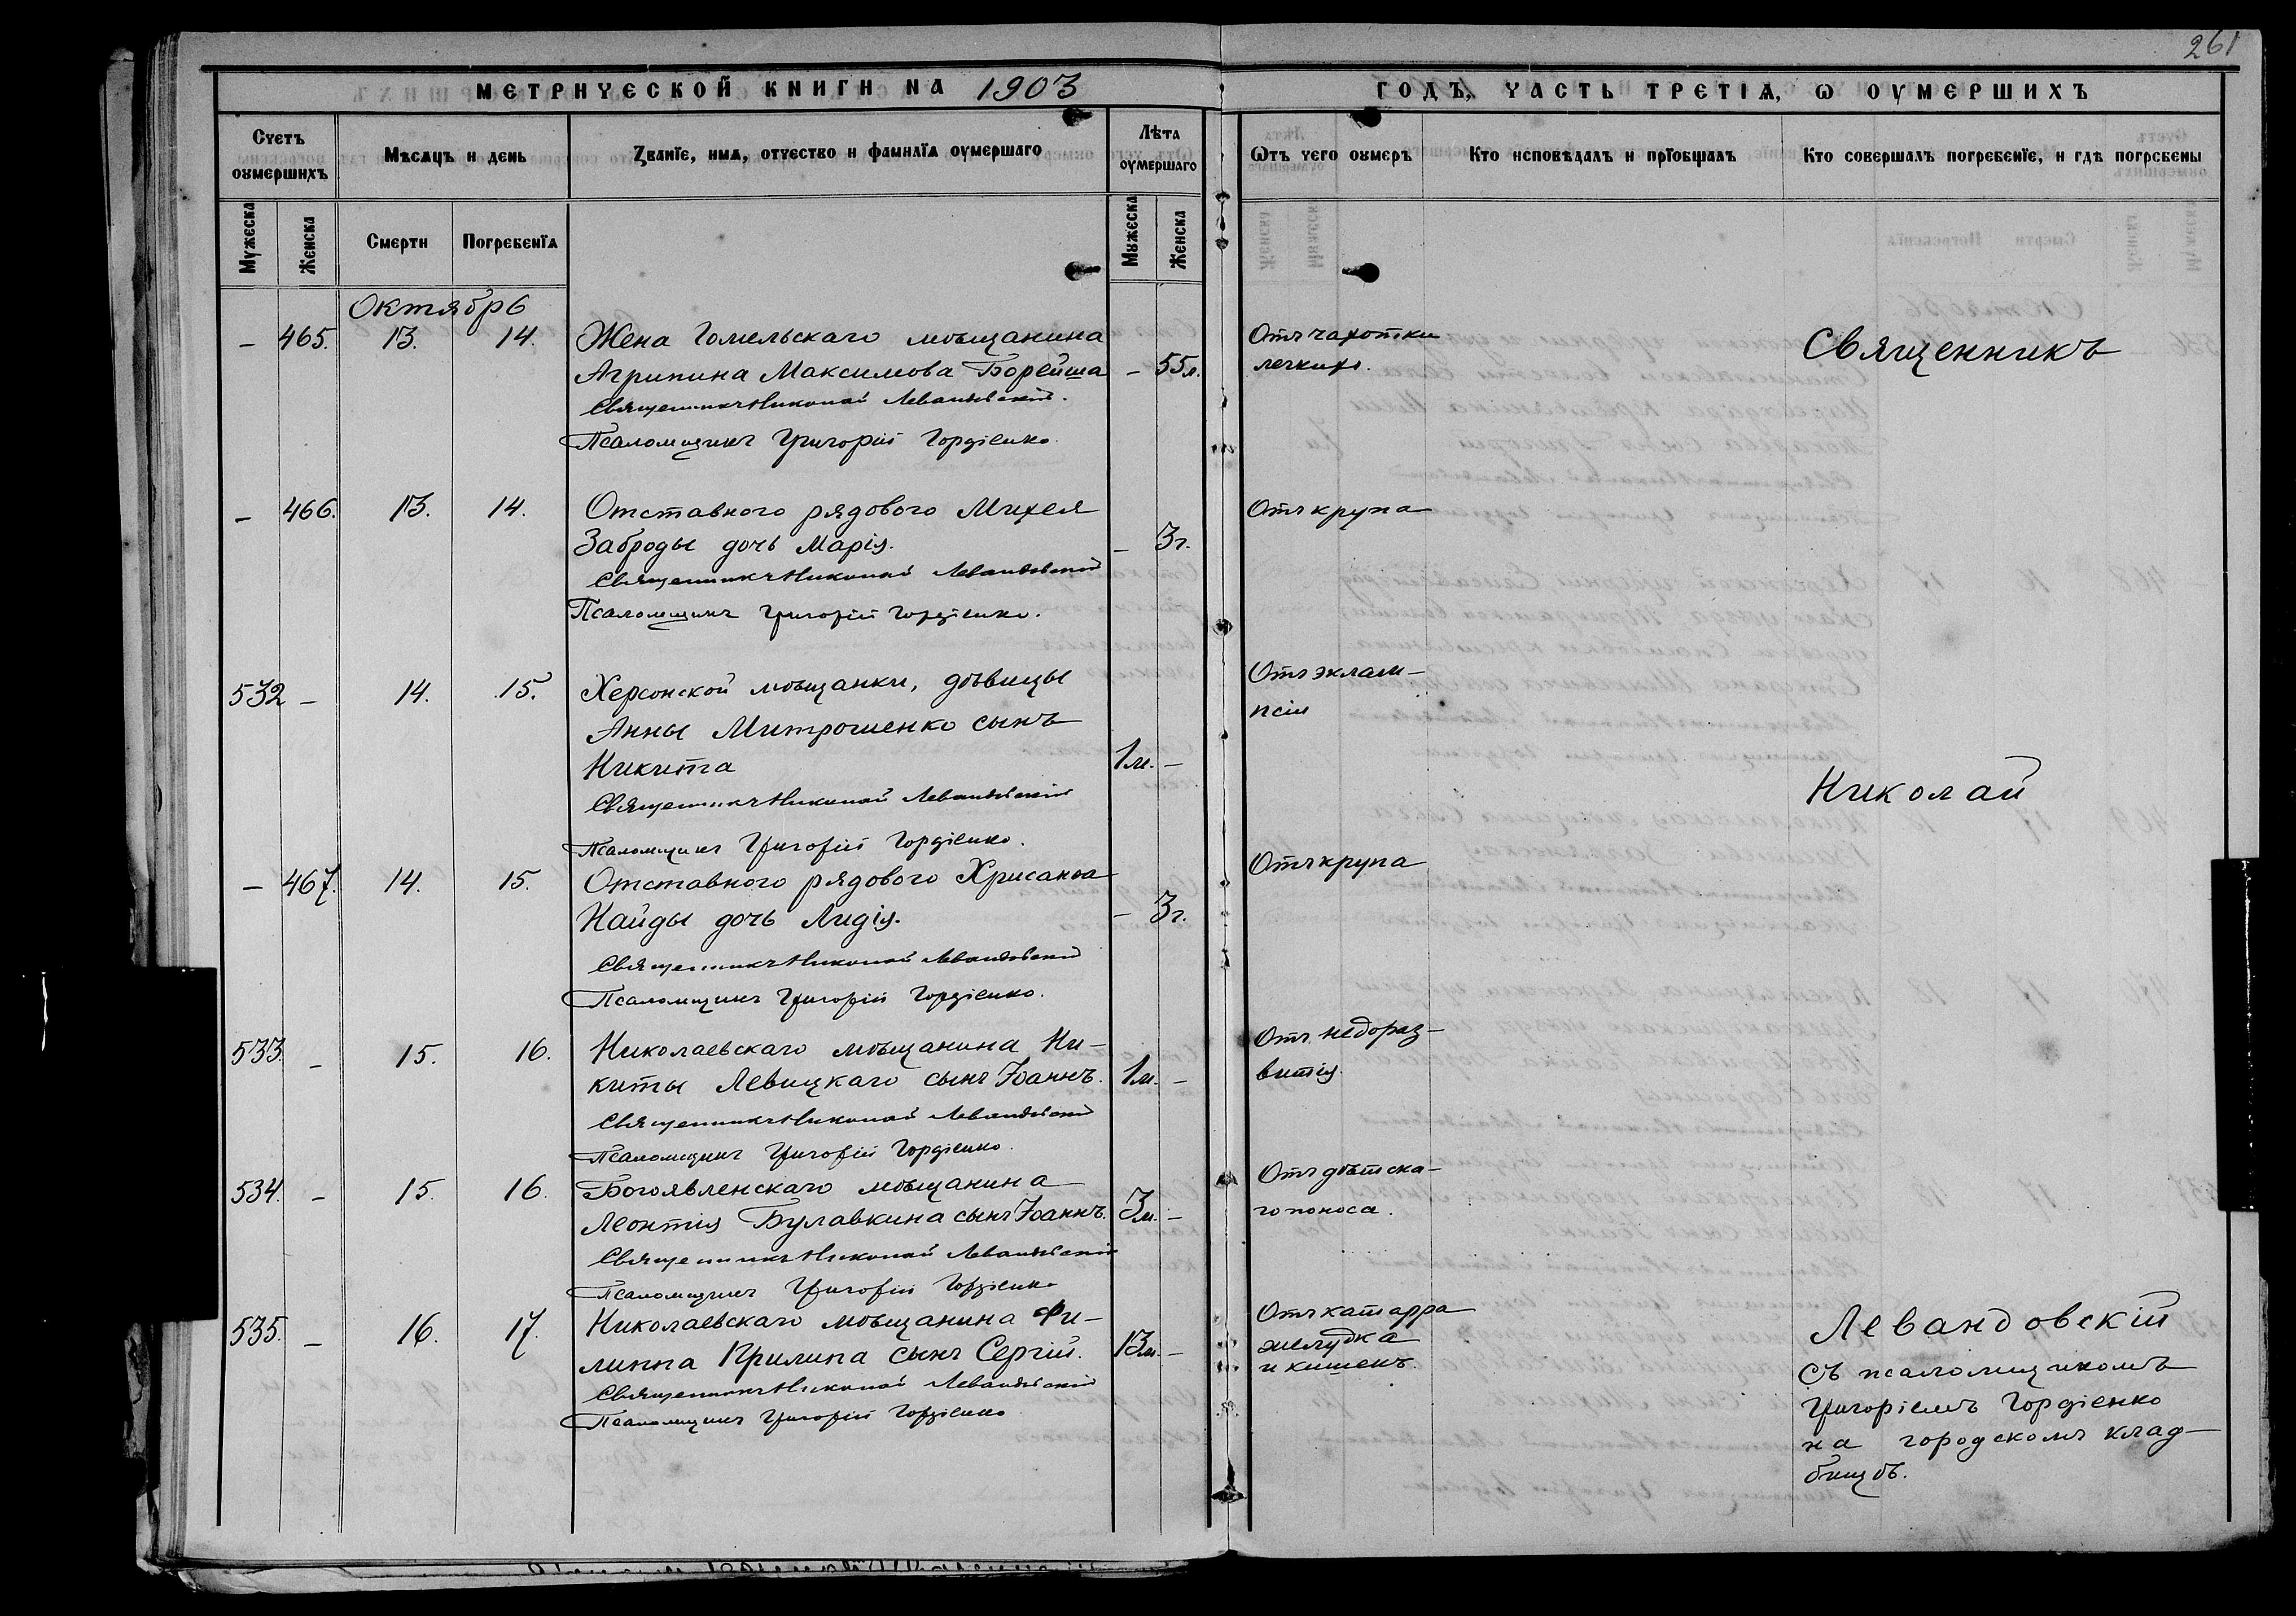 261
МЕТРИЧЕСКОЙ КНИГИ НА 1903 ГОДЪ, ЧАСТЬ ТРЕТІѦ, Ѡ ОУМЕРШИХЪ
Счетъ оумершихъ
Мѣсѧцъ и день
Званїе, имѧ, отчество и фамилїѧ оумершаго
Лѣта оумершаго
Ѿтъ чего оумеръ
Кто исповѣдалъ и прїобщалъ
Кто совершалъ погребенїе, и гдѣ погребены
Мужеска
Женска
Смерти
Погребенїѧ
Мужеска
Женска
Октябрь
– 465. 13. 14. Жена Гомельскаго мѣщанина
Агрипина Максимова Борейша – 55 л.
Отъ чахотки
легкихъ.
Священникъ Николай Левандовскій.
Псаломщикъ Григорій Гордіенко.
– 466. 13. 14. Отставного рядового Михея
Заброды дочь Марія. – 3 г.
Отъ крупа
Священникъ Николай Левандовскій
Псаломщикъ Григорій Гордіенко.
532 – 14. 15. Херсонской мѣщанки, дѣвицы
Анны Митрошенко сынъ
Никита 1 м. –
Отъ эклам–
псіи
Священникъ Николай Левандовскій
Псаломщикъ Григорій Гордіенко.
– 467. 14. 15. Отставного рядового Хрисанфа
Найды дочь Лидія. – 3 г.
Отъ крупа
Священникъ Николай Левандовскій
Псаломщикъ Григорій Гордіенко.
533 – 15. 16. Николаевскаго мѣщанина Ни–
киты Левицкаго сынъ Іоаннъ. 1 м. –
Отъ недораз–
витія.
Священникъ Николай Левандовскій
Псаломщикъ Григорій Гордіенко.
534. – 15. 16. Богоявленскаго мѣщанина
Леонтія Булавкина сынъ Іоаннъ. 3 м. –
Отъ дѣтска–
го поноса.
Священникъ Николай Левандовскій
Псаломщикъ Григорій Гордіенко
535. – 16. 17. Николаевскаго мѣщанина Фи–
липпа Крилипа сынъ Сергій. 13 м. –
Отъ катарра
желудка
и кишекъ.
Священникъ Николай Левандовскій
Псаломщикъ Григорій Гордіенко
Священникъ
Николай
Левандовскій
съ псаломщикомъ
Григоріемъ Гордіенко
на городскомъ клад–
бищѣ.